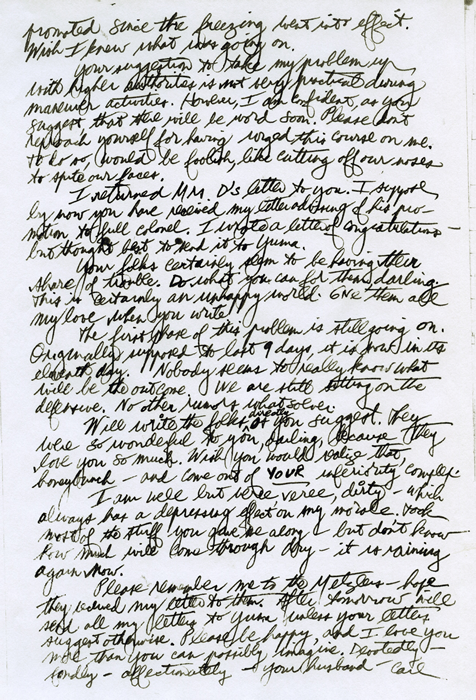 promoted since the freezing went into effect.
Wish I knew what was going on.
Your suggestion to take my problem up
with higher authorities is not very practical during
maneuver activities. However, I am confident, as you
suggest, that there will be word soon. Please don't
reproach yourself for having urged this course on me.
To do so, would be foolish, like cutting off our noses
to spite our faces.
I returned M.M. D's letter to you. I suppose
by now you have received my letter advising of his pro-
motion to full colonel. I wrote a letter of congratulations -
but thought best to send it to Yuma.
Your folks certainly seem to be having their
share of trouble. Do what you can for them, darling.
This is certainly an unhappy world. Give them all
my love when you write.
The first phase of this problem is still going on.
Originally supposed to last 9 days, it is now in its
eleventh day. Nobody seems to really know what
will be the outcome. We are still sitting on the
defensive. No other rumors whatsoever.
Will write the folks directly, as you suggest. They
were so wonderful to you, darling, because they
love you so much. Wish you would realize that
honeybunch - and come out of YOUR inferiority complex.
I am well but veree veree, dirty - which
always has a depressing effect on my morale. Took
most of the stuff you gave me along - but don't know
how much will come through dry - it is raining
again now.
Please remember me to the Metzlers - hope
they received my letter to them. After tomorrow will
send all my letters to Yuma unless your letters
suggest otherwise. Please be happy, and I love you
more than you can possibly imagine. Devotedly -
fondly - affectionately - Your husband - Carl